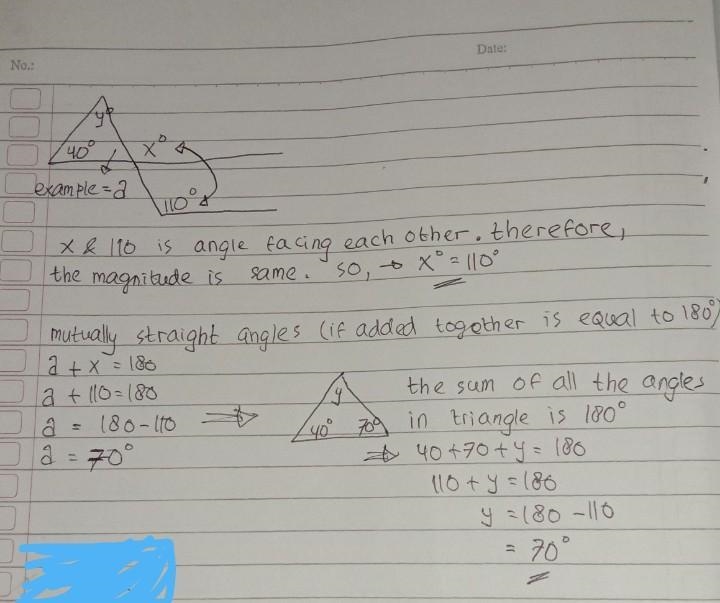 No.:
Date:
y°
40°
x°
example = a
110°
x & 110 is angle facing each other. therefore,
the magnitude is same. so, → x° = 110°
mutually straight angles (if added together is equal to 180°)
a + x = 180
a + 110 = 180
a = 180 - 110 ⇒
a = 70°
y
40° 70°
the sum of all the angles
in triangle is 180°
⇒ 40 + 70 + y = 180
110 + y = 180
y = 180 - 110
= 70°